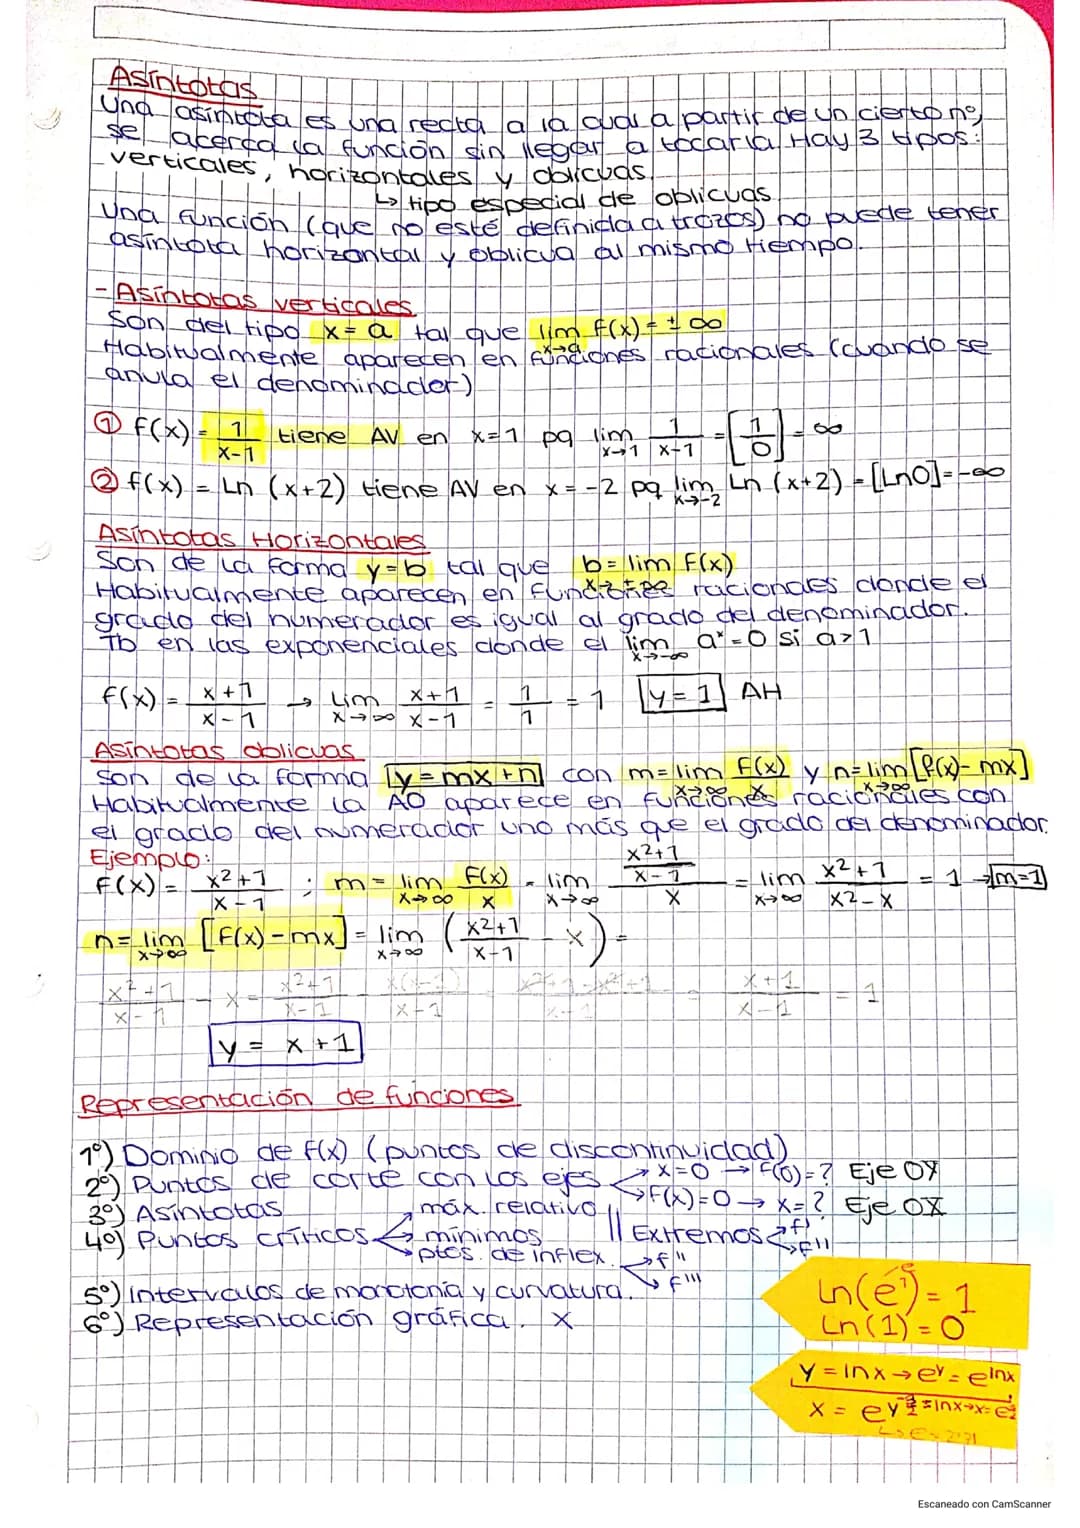 Asíntotas
Una asíntota es una recta a la cual a partir de un cierto nº,
se acerca la función sin llegar a tocarla. Hay 3 tipos:
verticales, horizontales y oblicuas.
↳ tipo especial de oblicuas
Una función (que no esté definida a trozos) no puede tener
asíntota horizontal y oblicua al mismo tiempo.
- Asíntotas verticales
Son del tipo x = a tal que lim x→a f(x) = ± ∞
Habitualmente aparecen en funciones racionales (cuando se
anula el denominador)
① f(x) = 1/(x-1) tiene AV en x=1 pq lim x→1 1/(x-1) = [1/0] = ∞
② f(x) = Ln (x+2) tiene AV en x = -2 pq lim x→-2 Ln (x+2) = [Ln0] = -∞
Asíntotas Horizontales
Son de la forma y=b tal que b = lim x→±∞ f(x)
Habitualmente aparecen en funciones racionales donde el
grado del numerador es igual al grado del denominador.
Tb en las exponenciales donde el lim x→-∞ aˣ = 0 si a>1
f(x) = (x+1)/(x-1) → lim x→∞ (x+1)/(x-1) = 1/1 = 1 y = 1 AH
Asíntotas oblicuas
Son de la forma y = mx + n con m = lim x→∞ f(x)/x y n = lim x→∞ [f(x) - mx]
Habitualmente la AO aparece en funciones racionales con
el grado del numerador uno más que el grado del denominador.
Ejemplo:
f(x) = (x²+1)/(x-1) ; m = lim x→∞ f(x)/x = lim x→∞ ((x²+1)/(x-1))/x = lim x→∞ (x²+1)/(x²-x) = 1 → m=1
n = lim x→∞ [f(x) - mx] = lim x→∞ ((x²+1)/(x-1) - x) =
(x²+1)/(x-1) - x = (x²+1)/(x-1) - x(x-1)/(x-1) = (x+1)/(x-1) = 1
y = x + 1
Representación de funciones
1º) Dominio de f(x) (puntos de discontinuidad)
2º) Puntos de corte con los ejes → x=0 → f(0)=? Eje OY
→ f(x)=0 → x=? Eje OX
3º) Asíntotas
4º) Puntos críticos → máx. relativo
mínimos || Extremos → f' → f''
→ ptos. de inflex. → f'' → f'''
5º) Intervalos de monotonía y curvatura.
6º) Representación gráfica. X
Ln(e¹) = 1
Ln(1) = 0
y = lnx → eʸ = e^lnx
x = eʸ
Escaneado con CamScanner